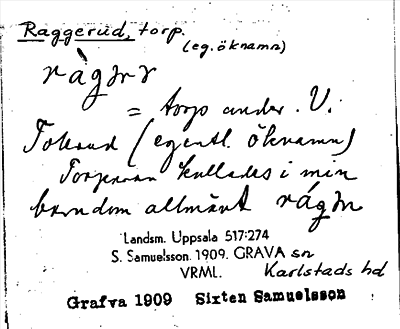 Raggerud, torp.
(eg. öknamn)
= torp under V.
Tolerud (egentl. öknamn)
kallades i min
barndom allmänt
Landsm. Uppsala 517:274
S. Samuelsson. 1909. GRAVA sn
VRML. Karlstads hd
Grafva 1909 Sixten Samuelsson